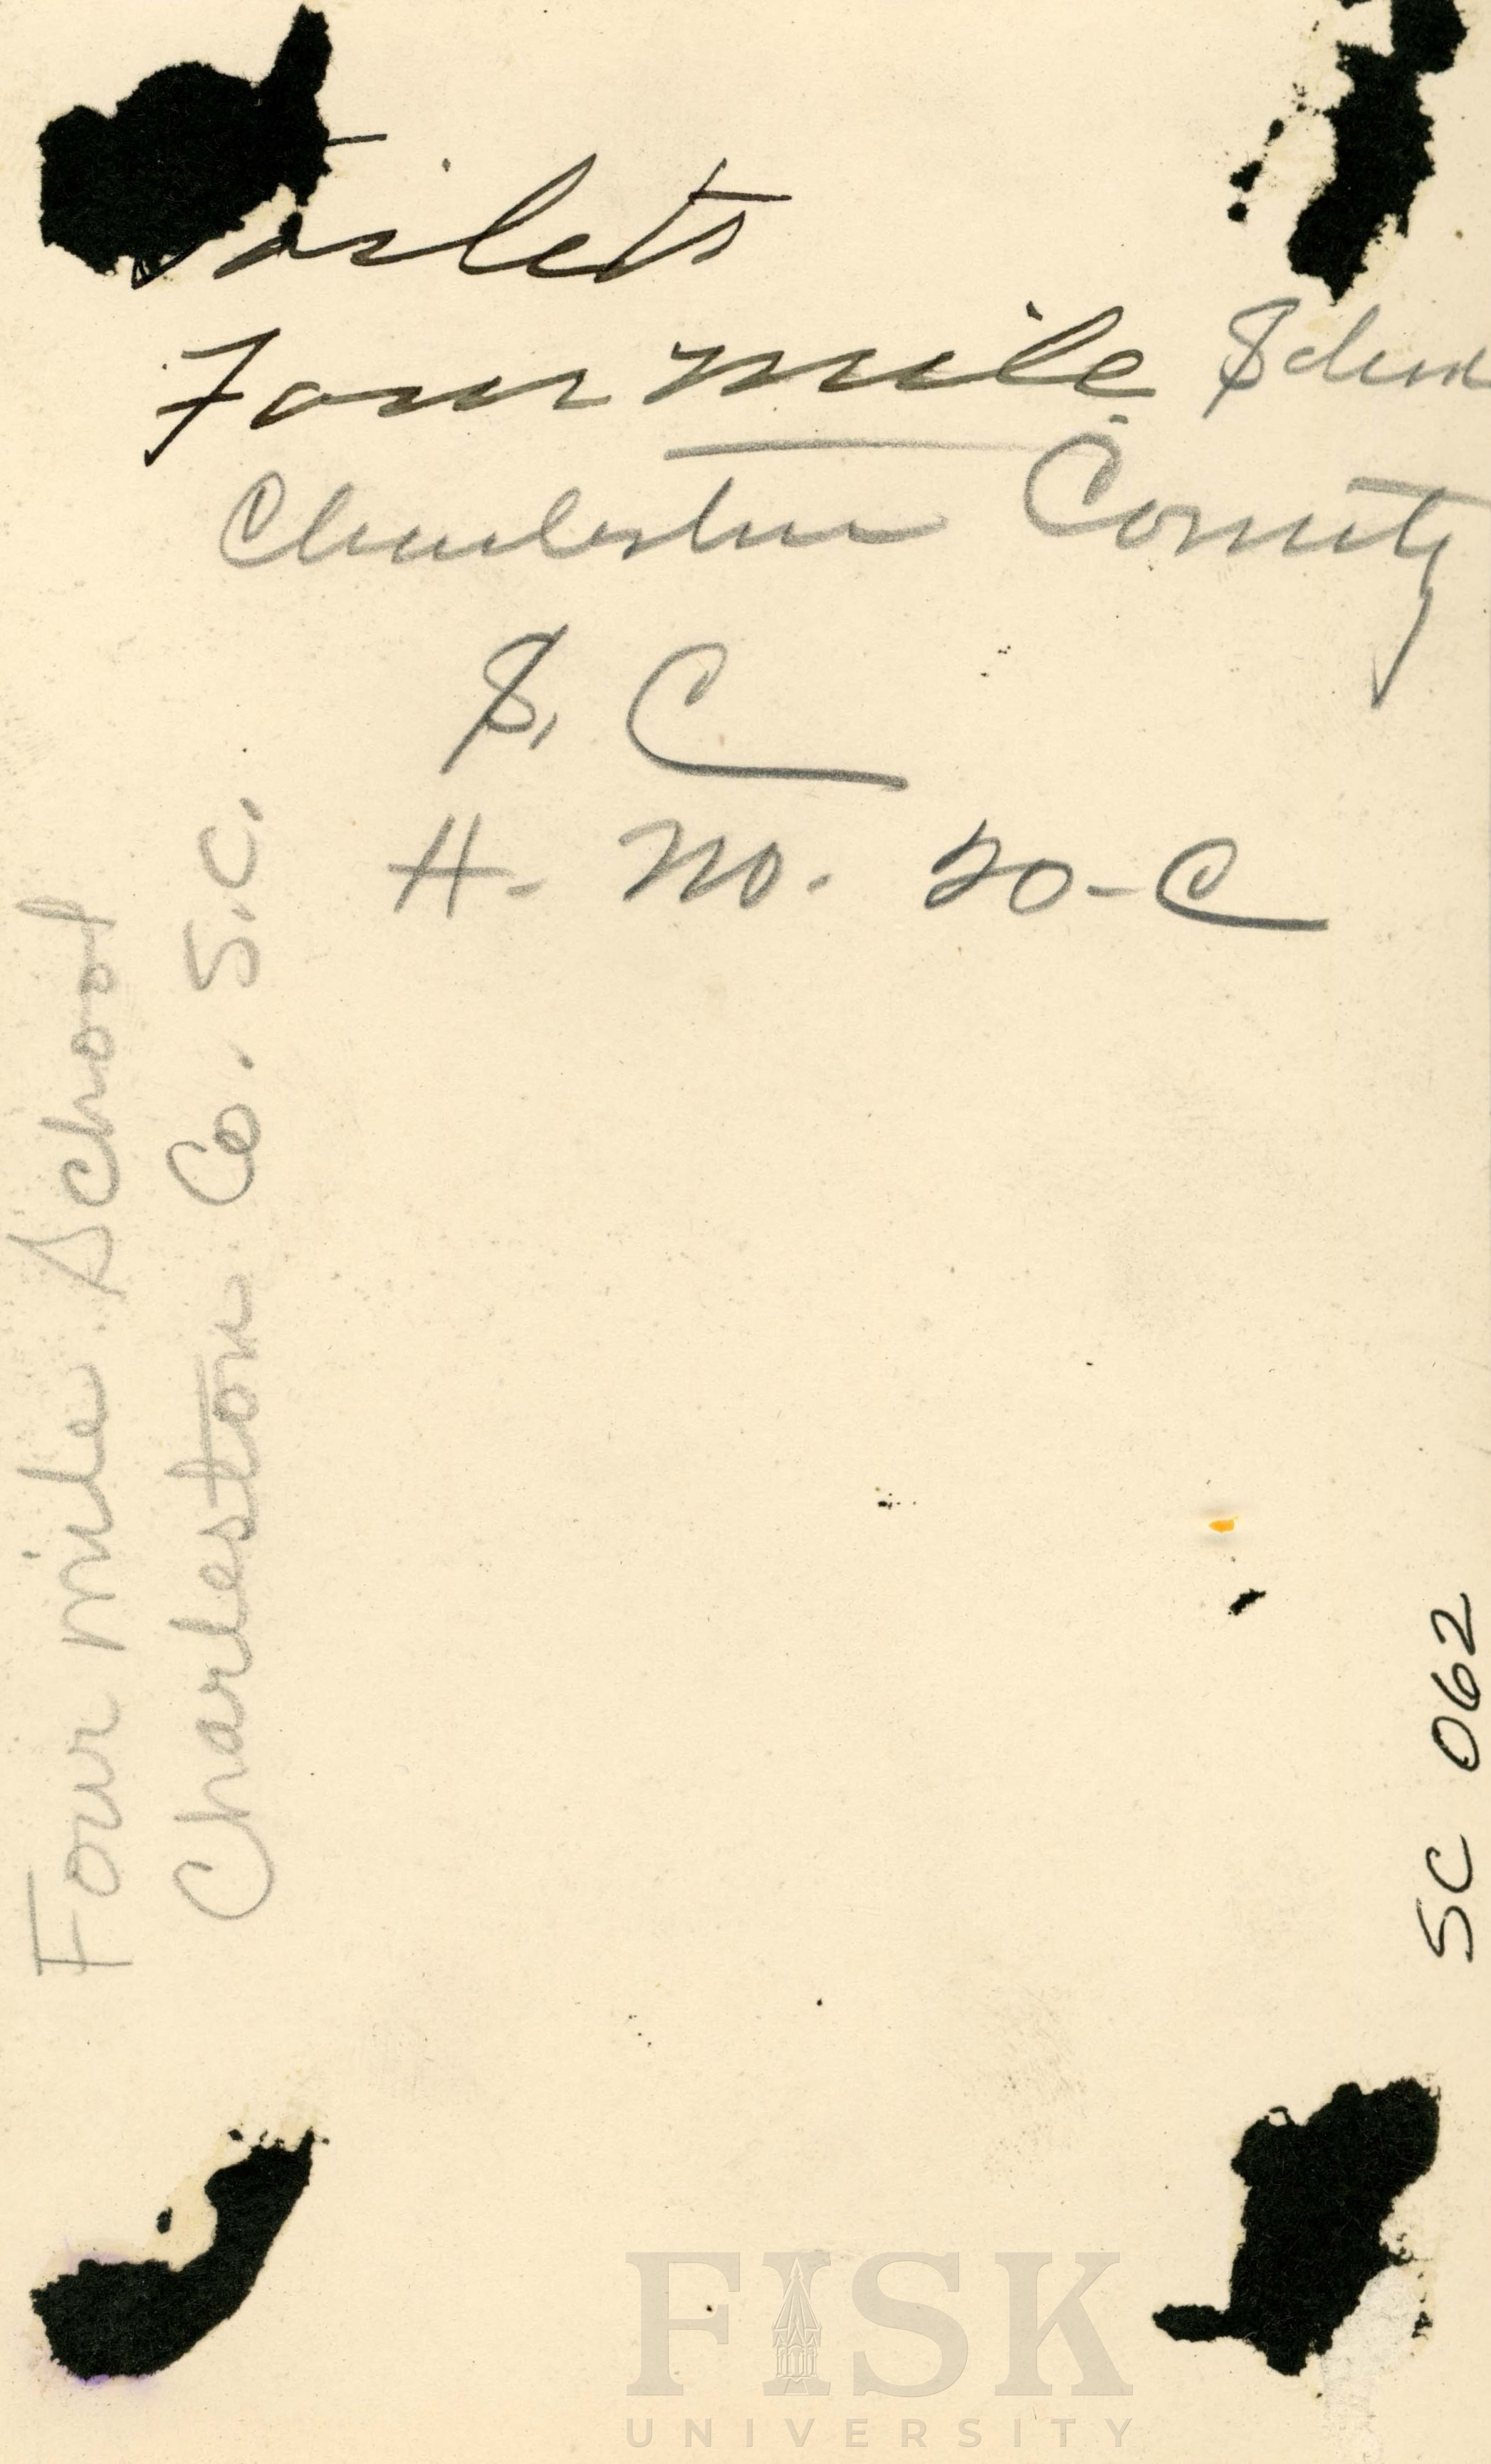 Toilets
Four mile School
Charleston County
S, C
H- No. 20-C
Four Mile School
Charleston Co. S.C.
SC 062
FISK
UNIVERSITY